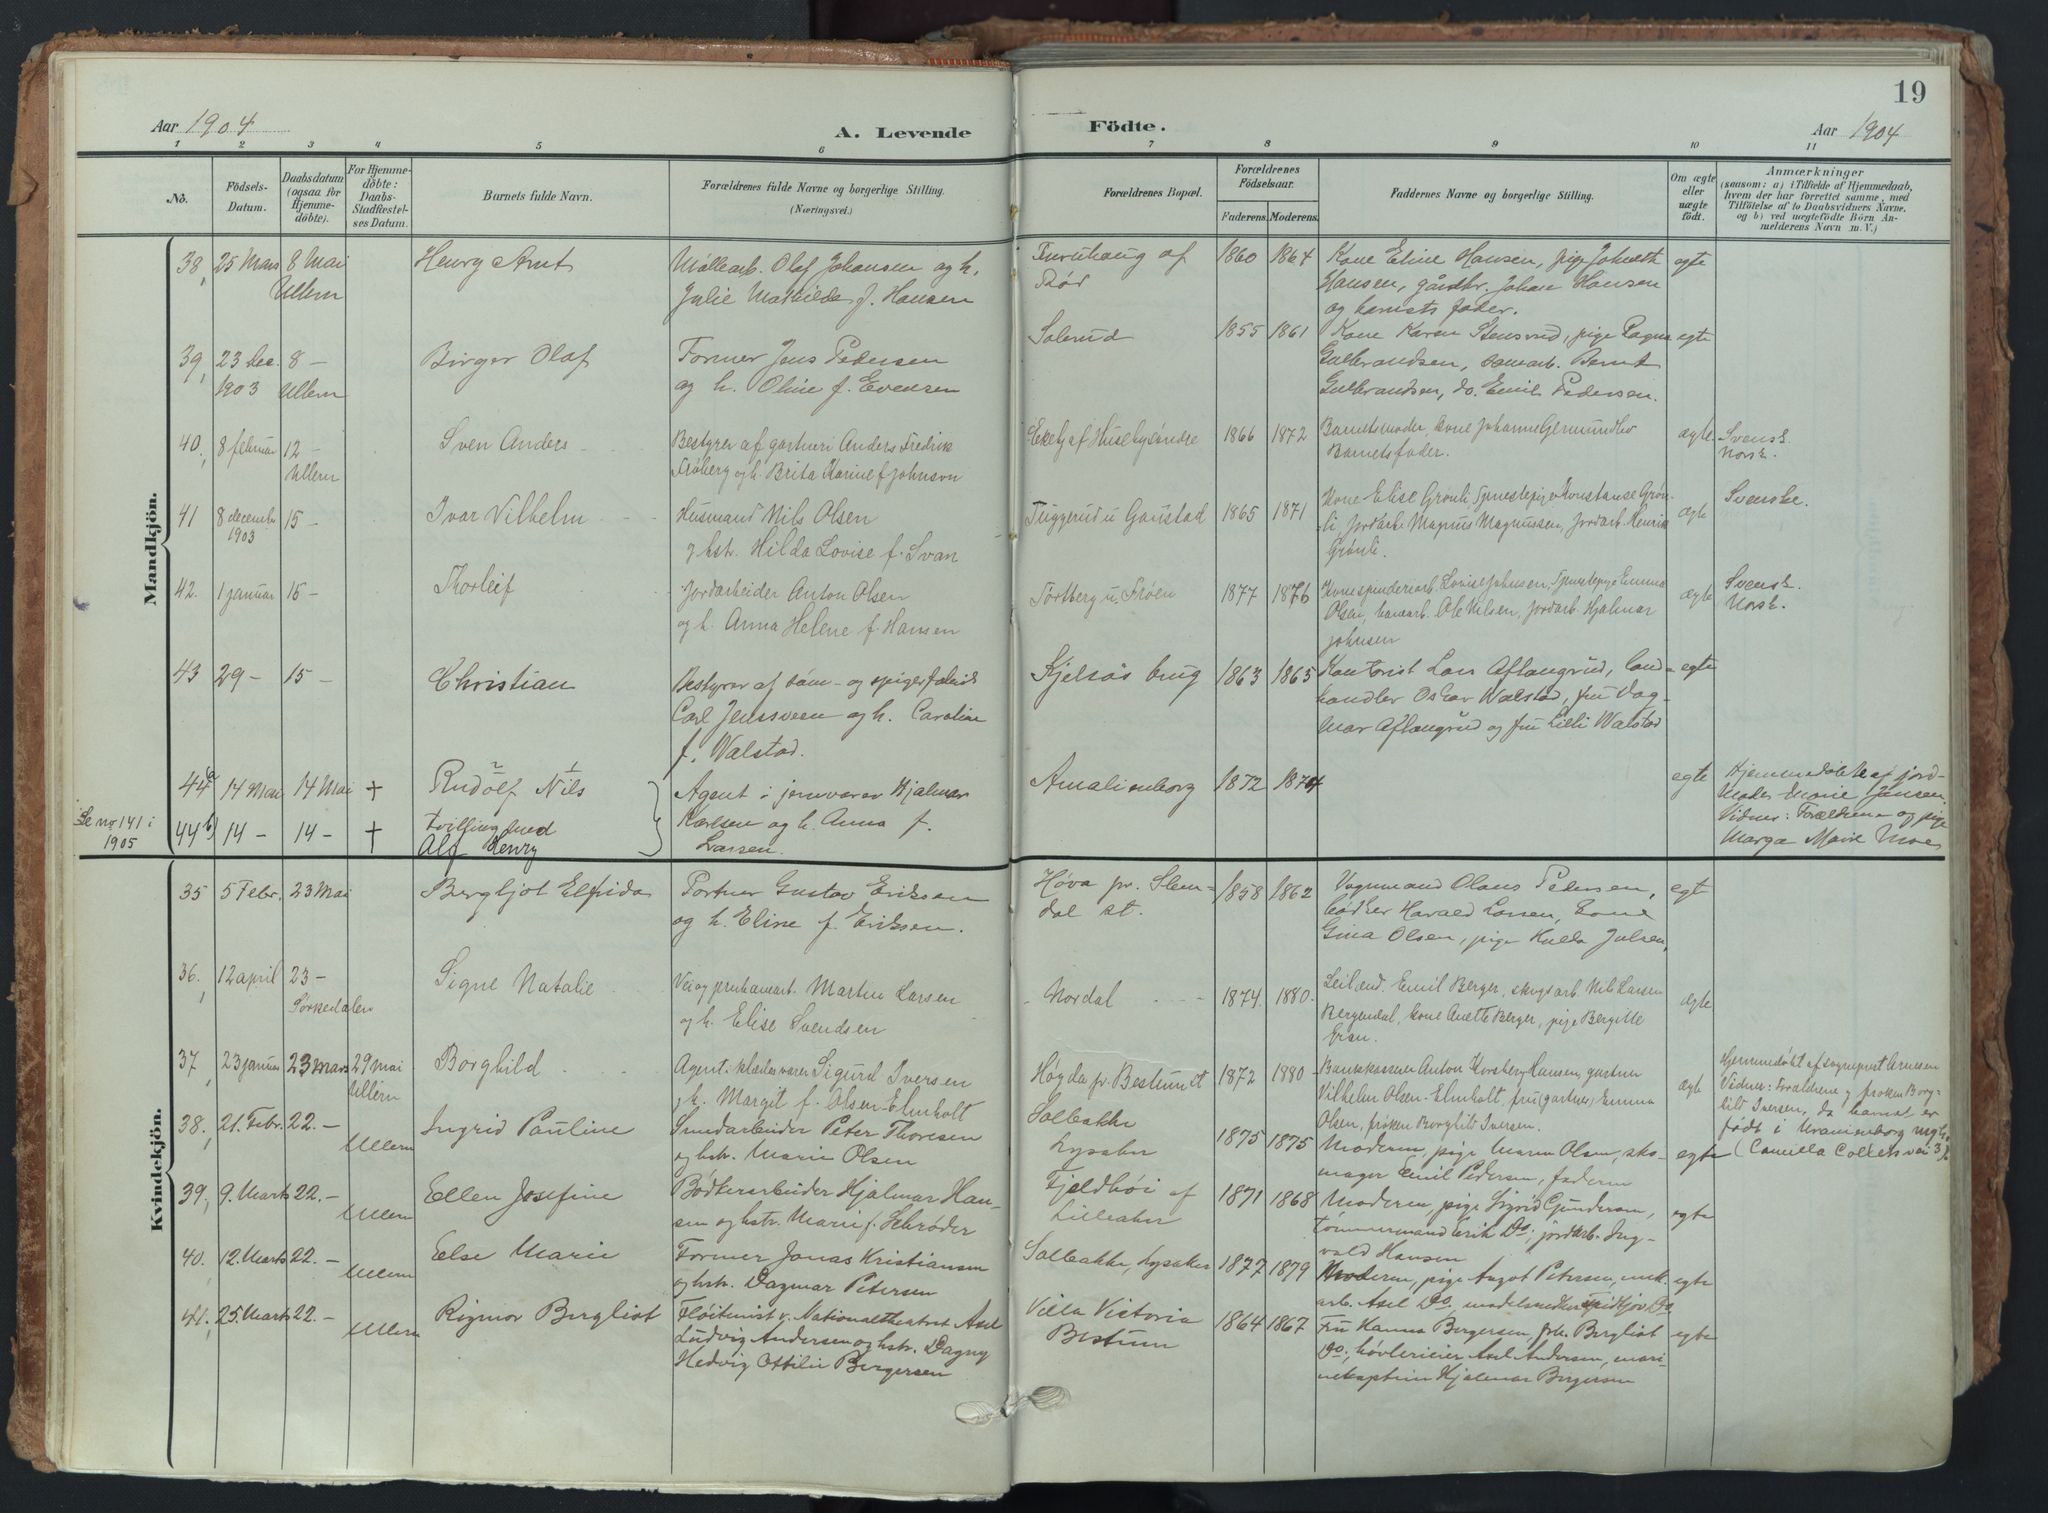 19
Aar 1904
A. Levende
Födte.
Aar 1904
1 2 3 4 5 6 7 8 9 10 11
No.
Födsels-
Datum.
Daabsdatum
(ogsaa for
Hjemme-
döbte).
For Hjemme-
döbte:
Daabs-
Stadfæstel-
ses Datum.
Barnets fulde Navn.
Forældrenes fulde Navne og borgerlige Stilling.
(Næringsvei.)
Forældrenes Bopæl.
Forældrenes
Födselsaar.
Faderens. Moderens.
Faddernes Navne og borgerlige Stilling.
Om ægte
eller
uægte
födt.
Anmærkninger
(saasom: a) i Tilfælde af Hjemmedaab,
hvem der har forrettet samme, med
Tilföielse af to Daabsvidners Navne,
og b) ved uægtefödte Börn An-
melderens Navn m. V.)
Mandkjön.
38, 25 Mars 8 Mai Henry Arnt
Ullern
Møllearb. Olaf Johansen og h.
Julie Mathilde f. Hansen
Furuhaug af
Rød
1860 1864
Kone Eline Hansen, pige
Hansen, gårdbr. Johan Hansen
og barnets fader.
egte
39, 23 Dec. 8 – Birger Olaf
1903 Ullern
Former Jens Pedersen
og h. Oline f. Evensen
Solerud
1855 1861
Kone Karen Stensrud, pige Ragna
Gulbrandsen, Bernt
Gulbrandsen, do. Emil Pedersen.
egte
40, 8 februar 12 – Sven Anders
Ullern
Bestyrer af gartneri Anders Fredrik
Frøberg og h. Brita Karine f Johnson
Ekely af Huseby søndre
1866 1872
Barnets moder, kone Johanne
Barnets fader.
ægte
Svensk.
Norsk.
41 8 december 15 – Ivar Vilhelm
1903
Husmand Nils Olsen
og hstr. Hilda Lovise f. Svan
Tuggerud u Gaustad
1865 1871
Kone Elise Grønli Tjenestepige Konstanse Grøn-
li, jordarb. Magnus Magnussen, jordarb. Henrik
Grønli.
ægte
Svenske.
42. 1 januar 15 – Thorleif
Jordarbeider Anton Olsen
og h. Anna Helene f Hansen
Tørtberg u. Frøen
1877 1876
Kone spinderiarb. Lovise Johnsen, Tjenestepige Emma
Olsen, Ole Nilsen, jordarb. Hjalmar
Johnsen
ægte
Svensk.
Norsk.
43 29 – 15 – Christian
Bestyrer af søm- og spigerfabrik
Carl Jenssveen og h. Caroline
f. Walstad.
Kjelsås brug
1863 1865
Kontorist Lars Aflangrud, land-
handler Oskar Walstad, fru Dag-
mar Aflangrud og fru Lilli Walstad
egte
44a 14 Mai 14 Mai + Rudolf Nils
Agent i jernvarer Hjalmar
Karlsen og h. Anna f.
Larsen.
Amalienborg
1872 1874
egte
Hjemmedøbt af jord-
moder Marie Jensen.
Vidner: Forældrene og pige
Marga Marie Moe
Se no 141 i
1905
44b) 14 – 14 – + tvilling med
Alf Henry
Kvindekjön.
35 5 Febr. 23 Mai Bergljot Elfrida
Portner Gustav Eriksen
og h. Eline f. Eriksen.
Høva pr. Slem-
dal st.
1858 1862
Vognmand Olaus Pedersen,
bødker Harald Larsen, kone
Gina Olsen, pige Hulda Julsen.
egt
36. 12 april 23 – Signe Natalie
Sørkedalen
Martin Larsen
og h. Elise Svendsen
Nordal
1874. 1880.
Leilænd. Emil Berger, skogsarb. Nils Larsen
Bergendal, kone Anette Berger, pige Bergitte
ægte
37, 23 januar 23 Mars 29 mai Borghild
Ullern
Agent i klædevarer Sigurd Iversen
og h. Margit f. Olsen-Elmholt
Høgda pr. Bestum
1872 1880
Bankkasserer Anton Hansen, gartner
Vilhelm Olsen-Elmholt, fru (gartner) Emma
Olsen, frøken Borghild Iversen.
ægt
Hjemmedøbt af sogneprest Arnesen
Vidner: Forældrene og frøken Borg-
hild Iversen, da barnet er
født i Uranienborg mgh.
(Camilla Colletts vei 3)
38., 21. Febr. 22. – Ingrid Pauline
Ullern
Smedarbeider Peter Thoresen
og hstr. Marie Olsen
Solbakke
Lysaker
1875 1875
Moderen, pige Maren Olsen, sko-
mager Emil Pedersen, faderen
egte
39, 9. Marts 22. – Ellen Josefine
Ullern
Bødkerarbeider Hjalmar Han-
sen og hstr. Marie f. Schrøder
Fjeldhøi af
Lilleaker
1871 1868
Moderen, pige Sigrid Gundersen,
tømmermand Erik Do; jordarb. Ing-
vald Hansen
egte
40. 12. Marts 22. – Else Marie
Ullern
Former Jonas Kristiansen
og hstr. Dagmar Petersen
Solbakke, Lysaker
1877 1879
Moderen, pige Aagot Petersen, mek.
arb. Axel Do, modelsnedker Fridtjov Do
egte
41., 25. Marts 22. – Rigmor Bergliot
Ullern
Fløitenist v. Nationaltheatret Axel
Ludvig Andersen og hstr. Dagny
Hedvig Ottilie Bergersen
Villa Victoria
Bestum
1864 1867
Fru Hanna Bergersen, frk. Bergliot
Do, Axel Andersen, mari-
nekaptein Hjalmar Bergersen
egte